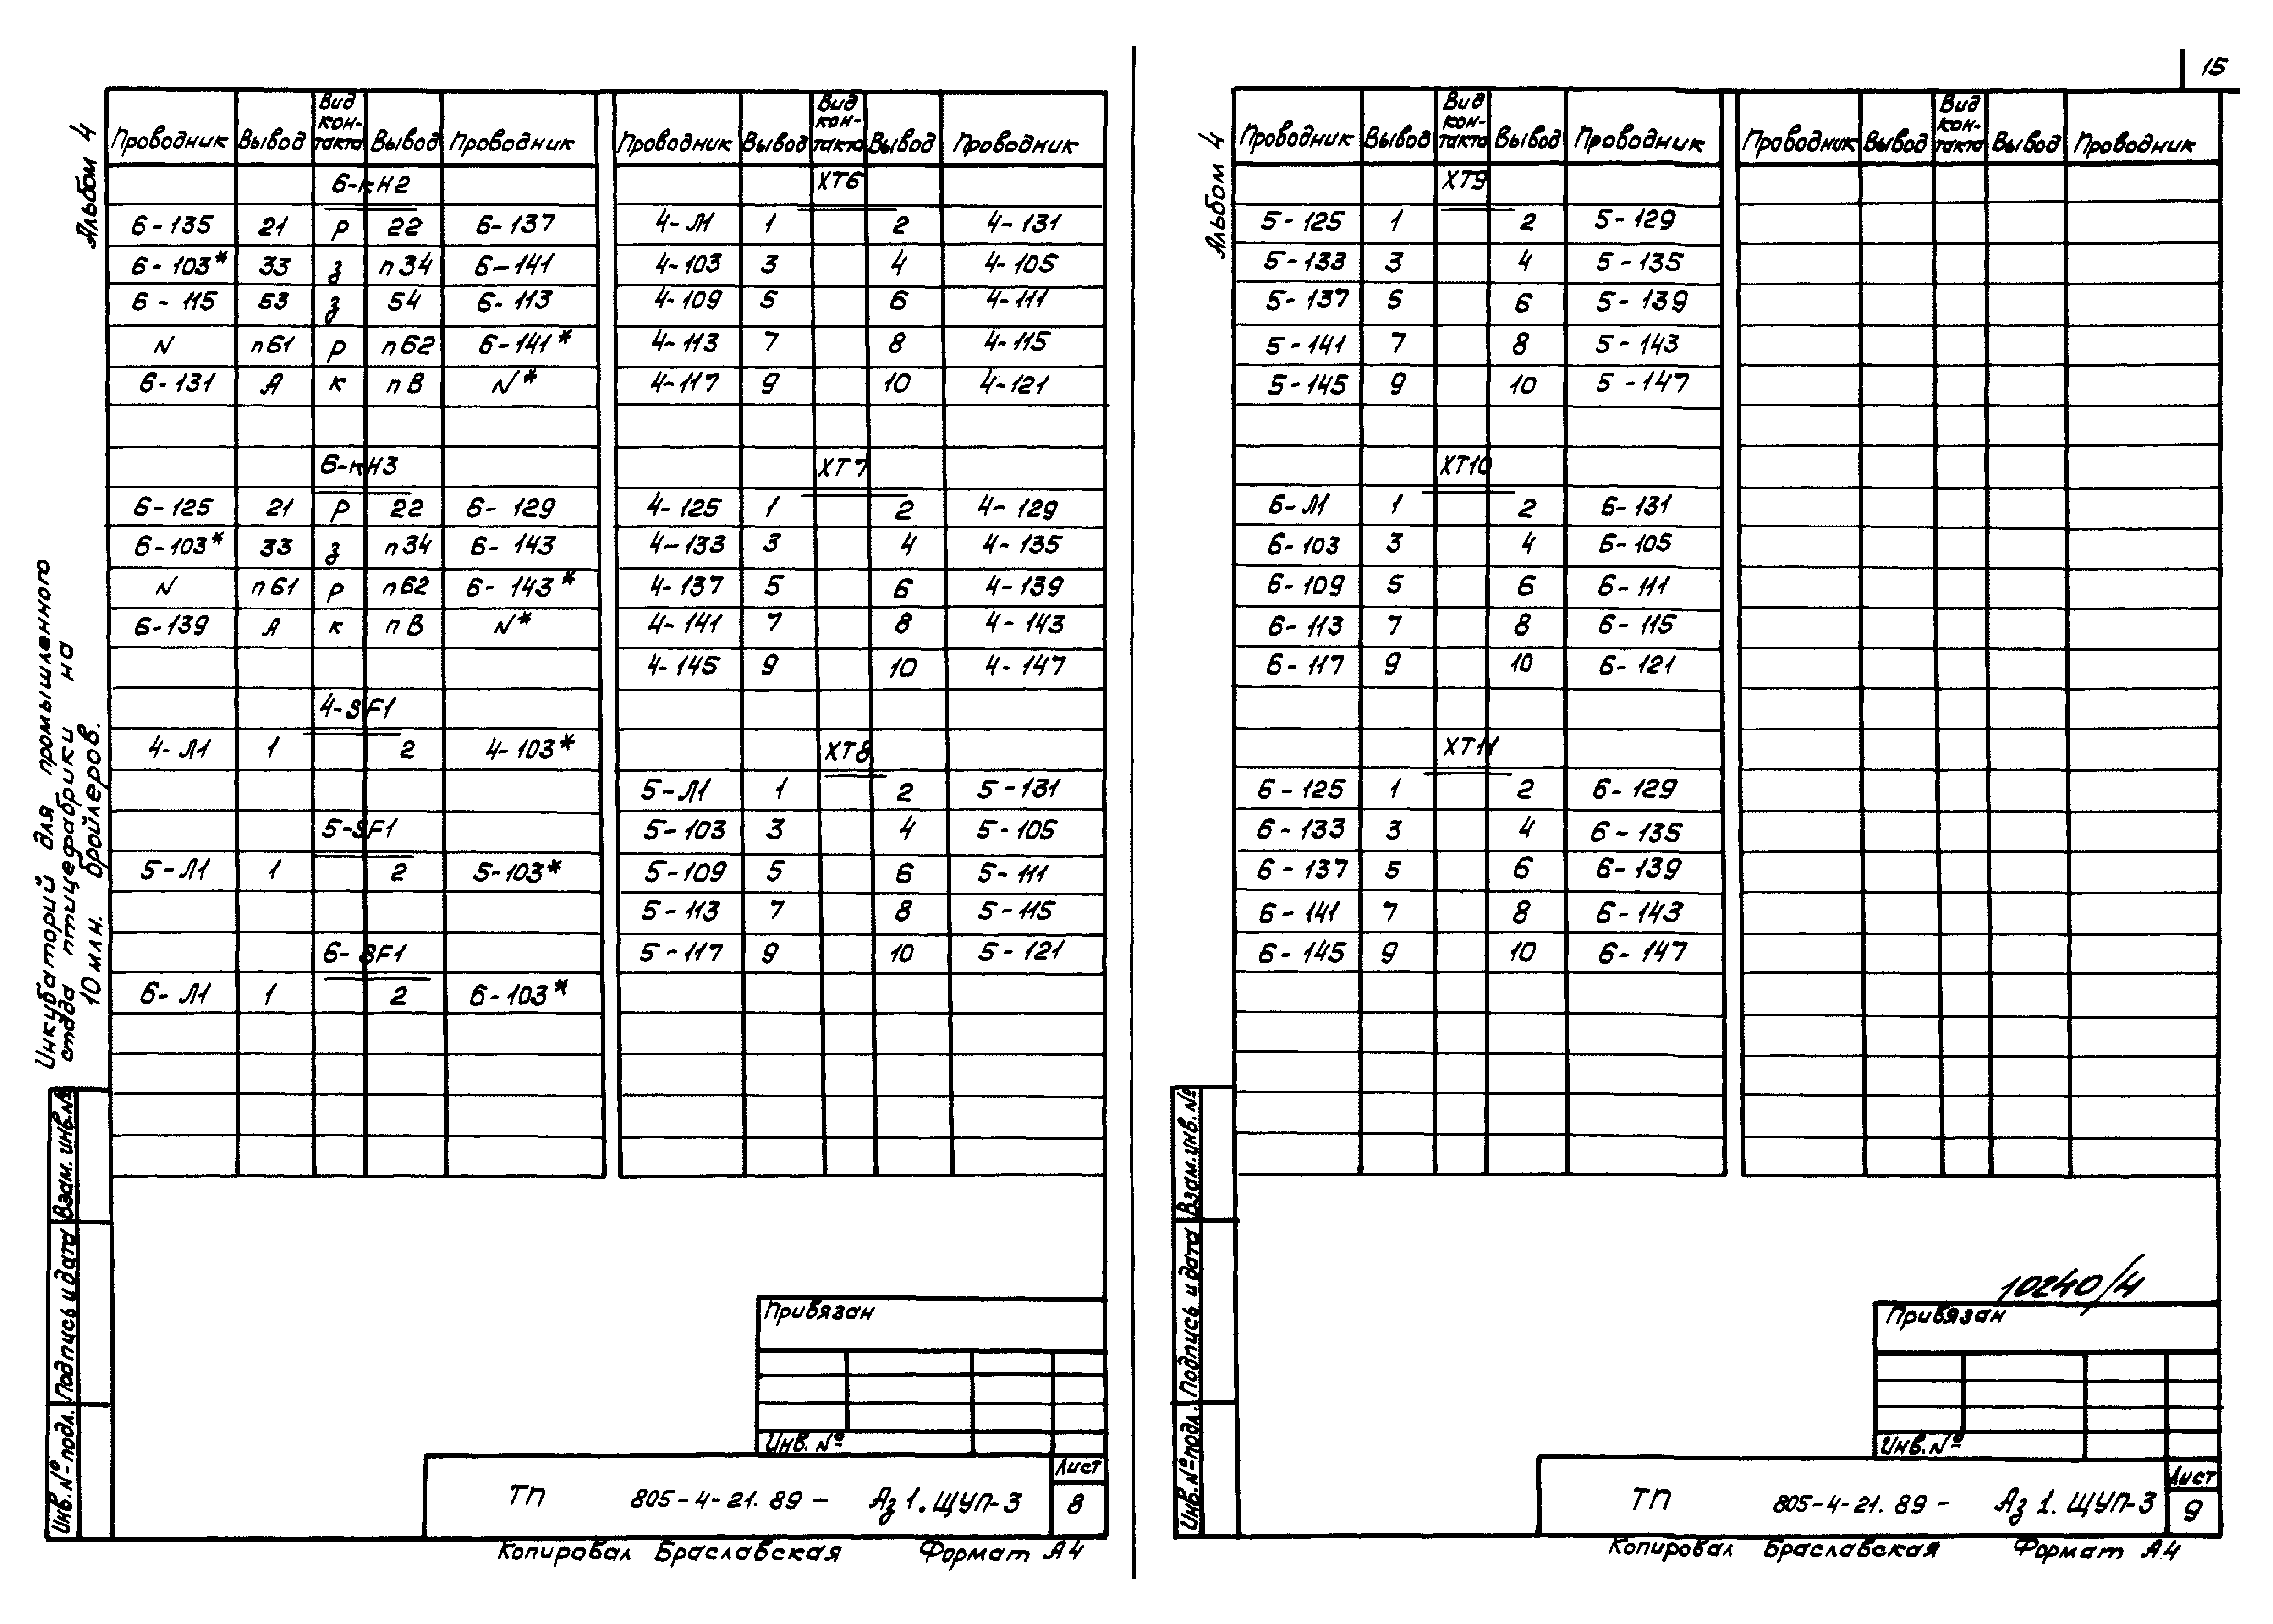 15
Альбом 4
Инкубаторий для промышленного
стада птицефабрики на
10 млн. бройлеров.
Проводник Вывод Вид кон-такта Вывод Проводник
6-КН2
6-135 21 р 22 6-137
6-103* 33 з п34 6-141
6-115 53 з 54 6-113
N п61 р п62 6-141*
6-131 А к пВ N*
6-КН3
6-125 21 р 22 6-129
6-103* 33 з п34 6-143
N п61 р п62 6-143*
6-139 А к пВ N*
4-SF1
4-Л1 1 2 4-103*
5-SF1
5-Л1 1 2 5-103*
6-SF1
6-Л1 1 2 6-103*
Проводник Вывод Вид кон-такта Вывод Проводник
ХТ6
4-Л1 1 2 4-131
4-103 3 4 4-105
4-109 5 6 4-111
4-113 7 8 4-115
4-117 9 10 4-121
ХТ7
4-125 1 2 4-129
4-133 3 4 4-135
4-137 5 6 4-139
4-141 7 8 4-143
4-145 9 10 4-147
ХТ8
5-Л1 1 2 5-131
5-103 3 4 5-105
5-109 5 6 5-111
5-113 7 8 5-115
5-117 9 10 5-121
Взам. инв. №
Подпись и дата
Инв. № подл.
Привязан
Инв. №
ТП 805-4-21.89- Аз 1. ЩУП-3
Лист
8
Копировал Браславская Формат А4
Альбом 4
Проводник Вывод Вид кон-такта Вывод Проводник
ХТ9
5-125 1 2 5-129
5-133 3 4 5-135
5-137 5 6 5-139
5-141 7 8 5-143
5-145 9 10 5-147
ХТ10
6-Л1 1 2 6-131
6-103 3 4 6-105
6-109 5 6 6-111
6-113 7 8 6-115
6-117 9 10 6-121
ХТ11
6-125 1 2 6-129
6-133 3 4 6-135
6-137 5 6 6-139
6-141 7 8 6-143
6-145 9 10 6-147
Проводник Вывод Вид кон-такта Вывод Проводник
Взам. инв. №
Подпись и дата
Инв. № подл.
10240/4
Привязан
Инв. №
ТП 805-4-21.89- Аз 1. ЩУП-3
Лист
9
Копировал Браславская Формат А4